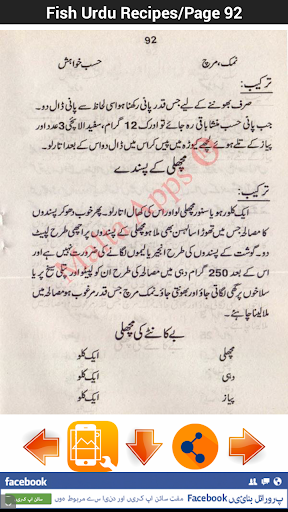 Fish Urdu Recipes/Page 92
92
نمک، مرچ حسب خواہش
ترکیب:
صرف بھوننے کے لیے جس قدر پانی رکھنا ہو اسی لحاظ سے پانی ڈال دو۔
جب پانی حسب منشا باقی رہ جائے تو ادرک 12 گرام، سفید الائچی 3 عدد اور
پیاز کے تلے ہوئے لچھے کیوڑہ میں پیس کر اس میں ڈال دو اس کے بعد اتار لو۔
مچھلی کے پسندے
ترکیب:
ایک کلو رہو یا سنور مچھلی لو اور اس کی کھال اتار لو۔ پھر خوب دھو کر پسندوں
کا مصالحہ جس میں تھوڑا سا بیسن بھی ملا ہو مچھلی کے پسندوں پر اچھی طرح لپیٹ
دو۔ گوشت کے پسندوں کی طرح انجیر یا لیموں لگانے کی ضرورت نہیں ہے اور
اس کے بعد 250 گرام دہی میں مصالحہ کی طرح ان کو لپیٹو اور پتلی سیخ پر یا
سلاخوں پر گھی لگاتی جاؤ اور بھونتی جاؤ۔ نمک مرچ جس قدر مرغوب ہو مصالحہ میں
ملا لینا چاہئے۔
بے کانٹے کی مچھلی
مچھلی ایک کلو
دہی ایک کلو
پیاز ایک کلو
Malta Apps ©
facebook
Facebook پر پورٹریل بنائیں
مفت سائن اپ کریں
سائن اپ کریں